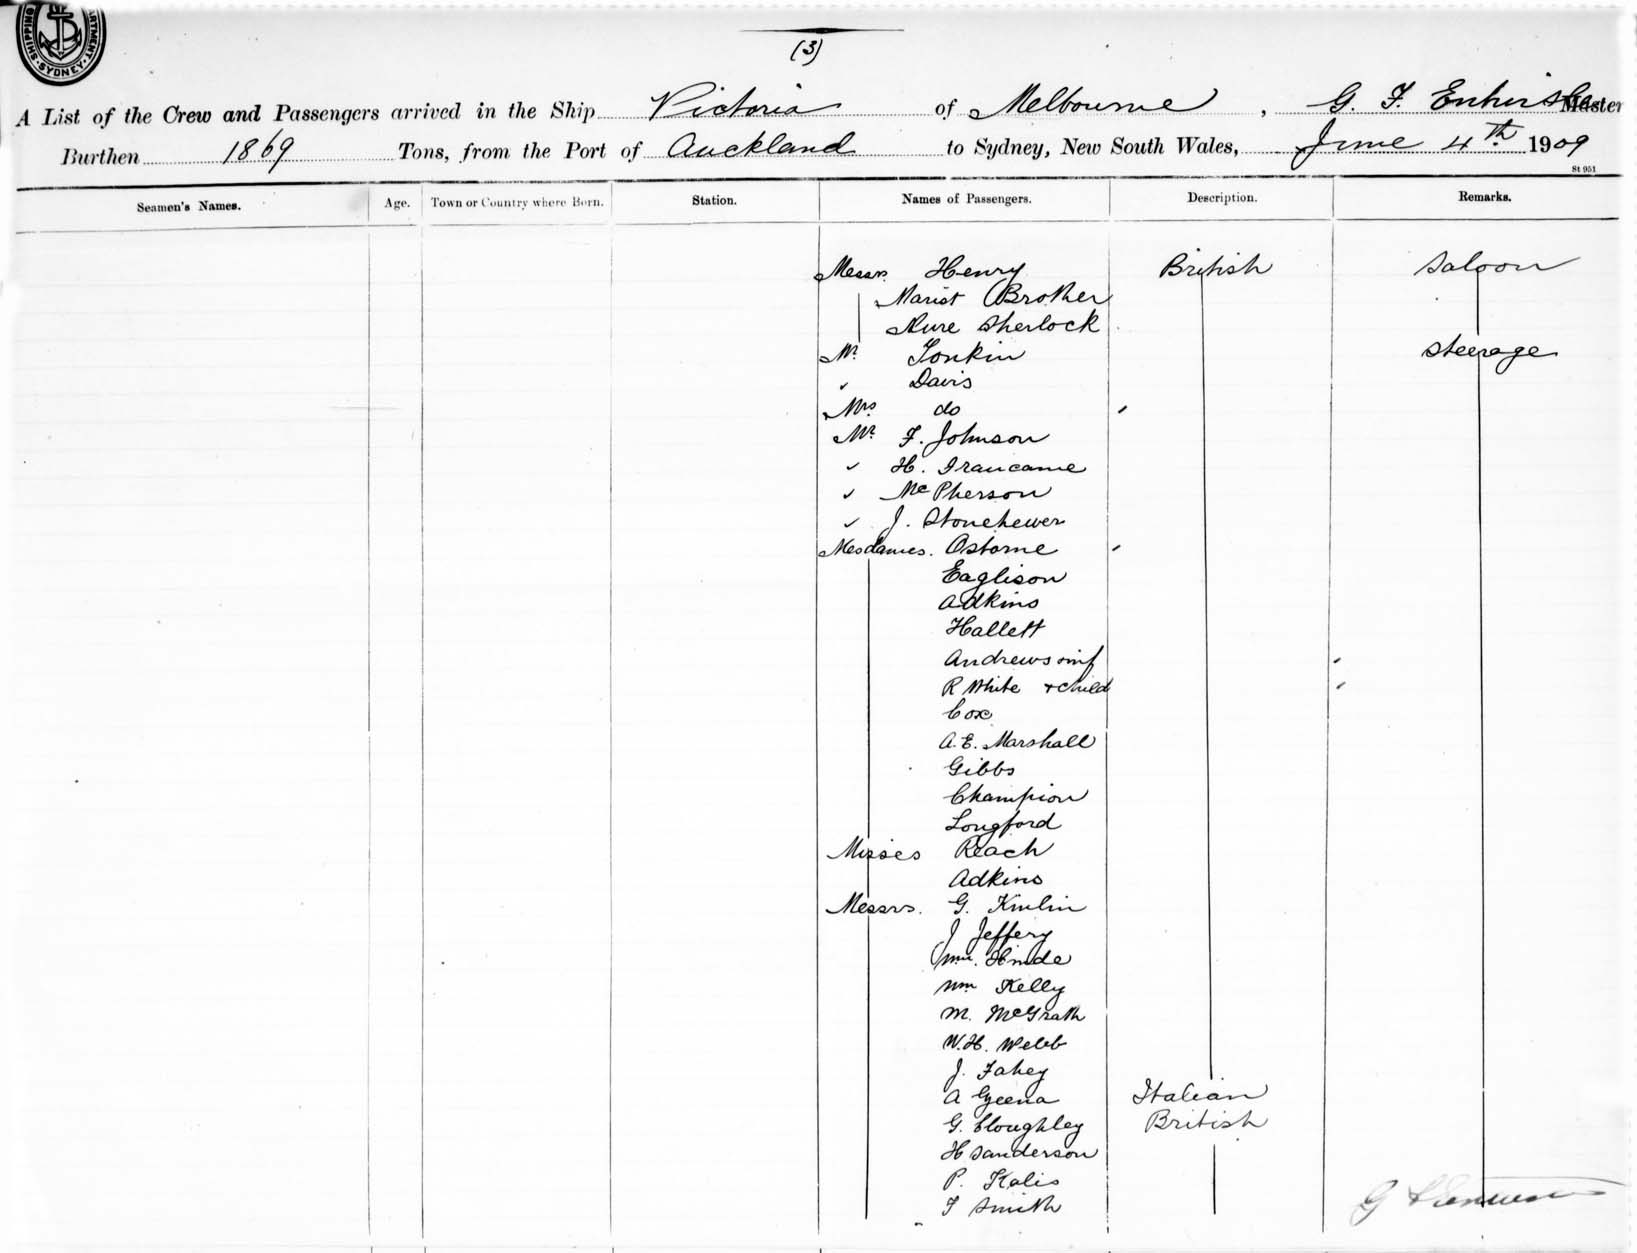 SHIPPING DEPARTMENT SYDNEY
(3)
A List of the Crew and Passengers arrived in the Ship Victoria of Melbourne, G. F. Master
Burthen 1869 Tons, from the Port of Auckland to Sydney, New South Wales, June 4th 1909
St 951
Seamen's Names. Age. Town or Country where Born. Station. Names of Passengers. Description. Remarks.
Messrs Henry British Saloon
Marist Brother
Sherlock
Mr Tonkin Steerage
" Davis
Mrs do
Mr F. Johnson
" H.
" McPherson
" J. Stonehewer
Mesdames. Osborne
Eaglison
Adkins
Hallett
Andrews & inf
R White & child
Cox
A. E. Marshall
Gibbs
Champion
Longford
Misses Reach
Adkins
Messrs. G. Kinlin
J Jeffery
Wm. Hinde
Wm Kelly
M. McGrath
W. H. Webb
J. Fahey
A Italian
G. Cloughley British
H Sanderson
P. Kalis
F Smith